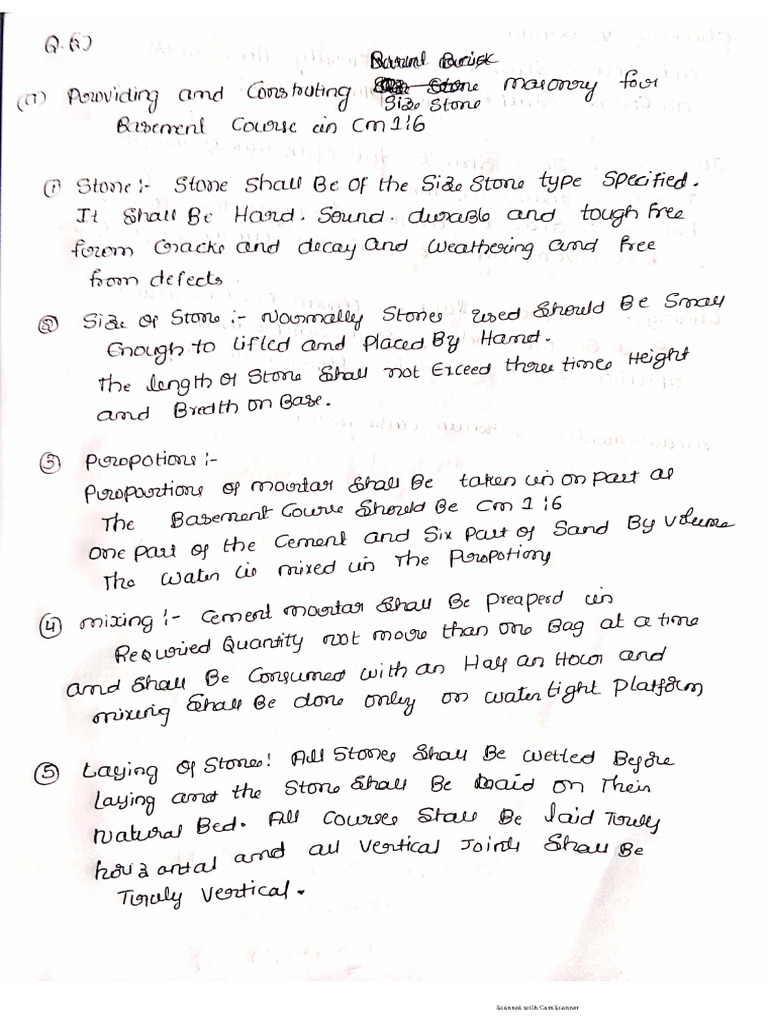 Q.6)
Burnt Brick
(A) Providing and Constrating Size Stone masonry for
Size Stone
Basement Course in Cm 1:6
① Stone :- Stone Shall Be of the Size Stone type Specified.
It Shall Be Hard. Sound. durable and tough free
from Cracks and decay and weathering and free
from defects.
② Size of Stone :- Normally Stones used Should Be Small
Enough to lifted and placed By Hand.
The length of Stone Shall not Exceed three times Height
and Bredth on Base.
③ Propotions :-
Proportions of mortar Shall Be taken in on part as
The Basement Course Should Be Cm 1:6
One part of the Cement and Six Part of Sand By Volume
The water is mixed in The Propotions
④ mixing :- Cement mortar Shall Be preaperd in
Required Quantity not more than one Bag at a time
and Shall Be Consumed with an Half an Hour and
mixing Shall Be done only on water tight Platform
⑤ Laying Of Stones: All Stones Shall Be wetted Before
laying and the Stone Shall Be laid on Their
Natural Bed. All Courses Shall Be laid Truly
horizontal and all vertical Joints Shall Be
Truly vertical.
Scanned with CamScanner